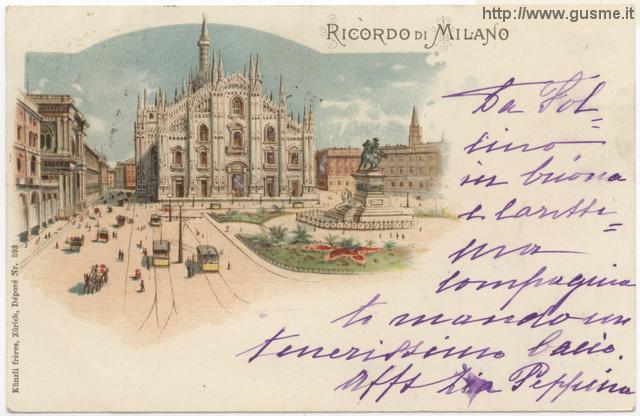 http://www.gusme.it
RICORDO DI MILANO
Da Sol=
cino
in buona
e carissi=
ma
compagnia
ti mando un
tenerissimo bacio.
Aff? Zia Peppina
Künzli frères, Zürich, Déposé Nr. 593